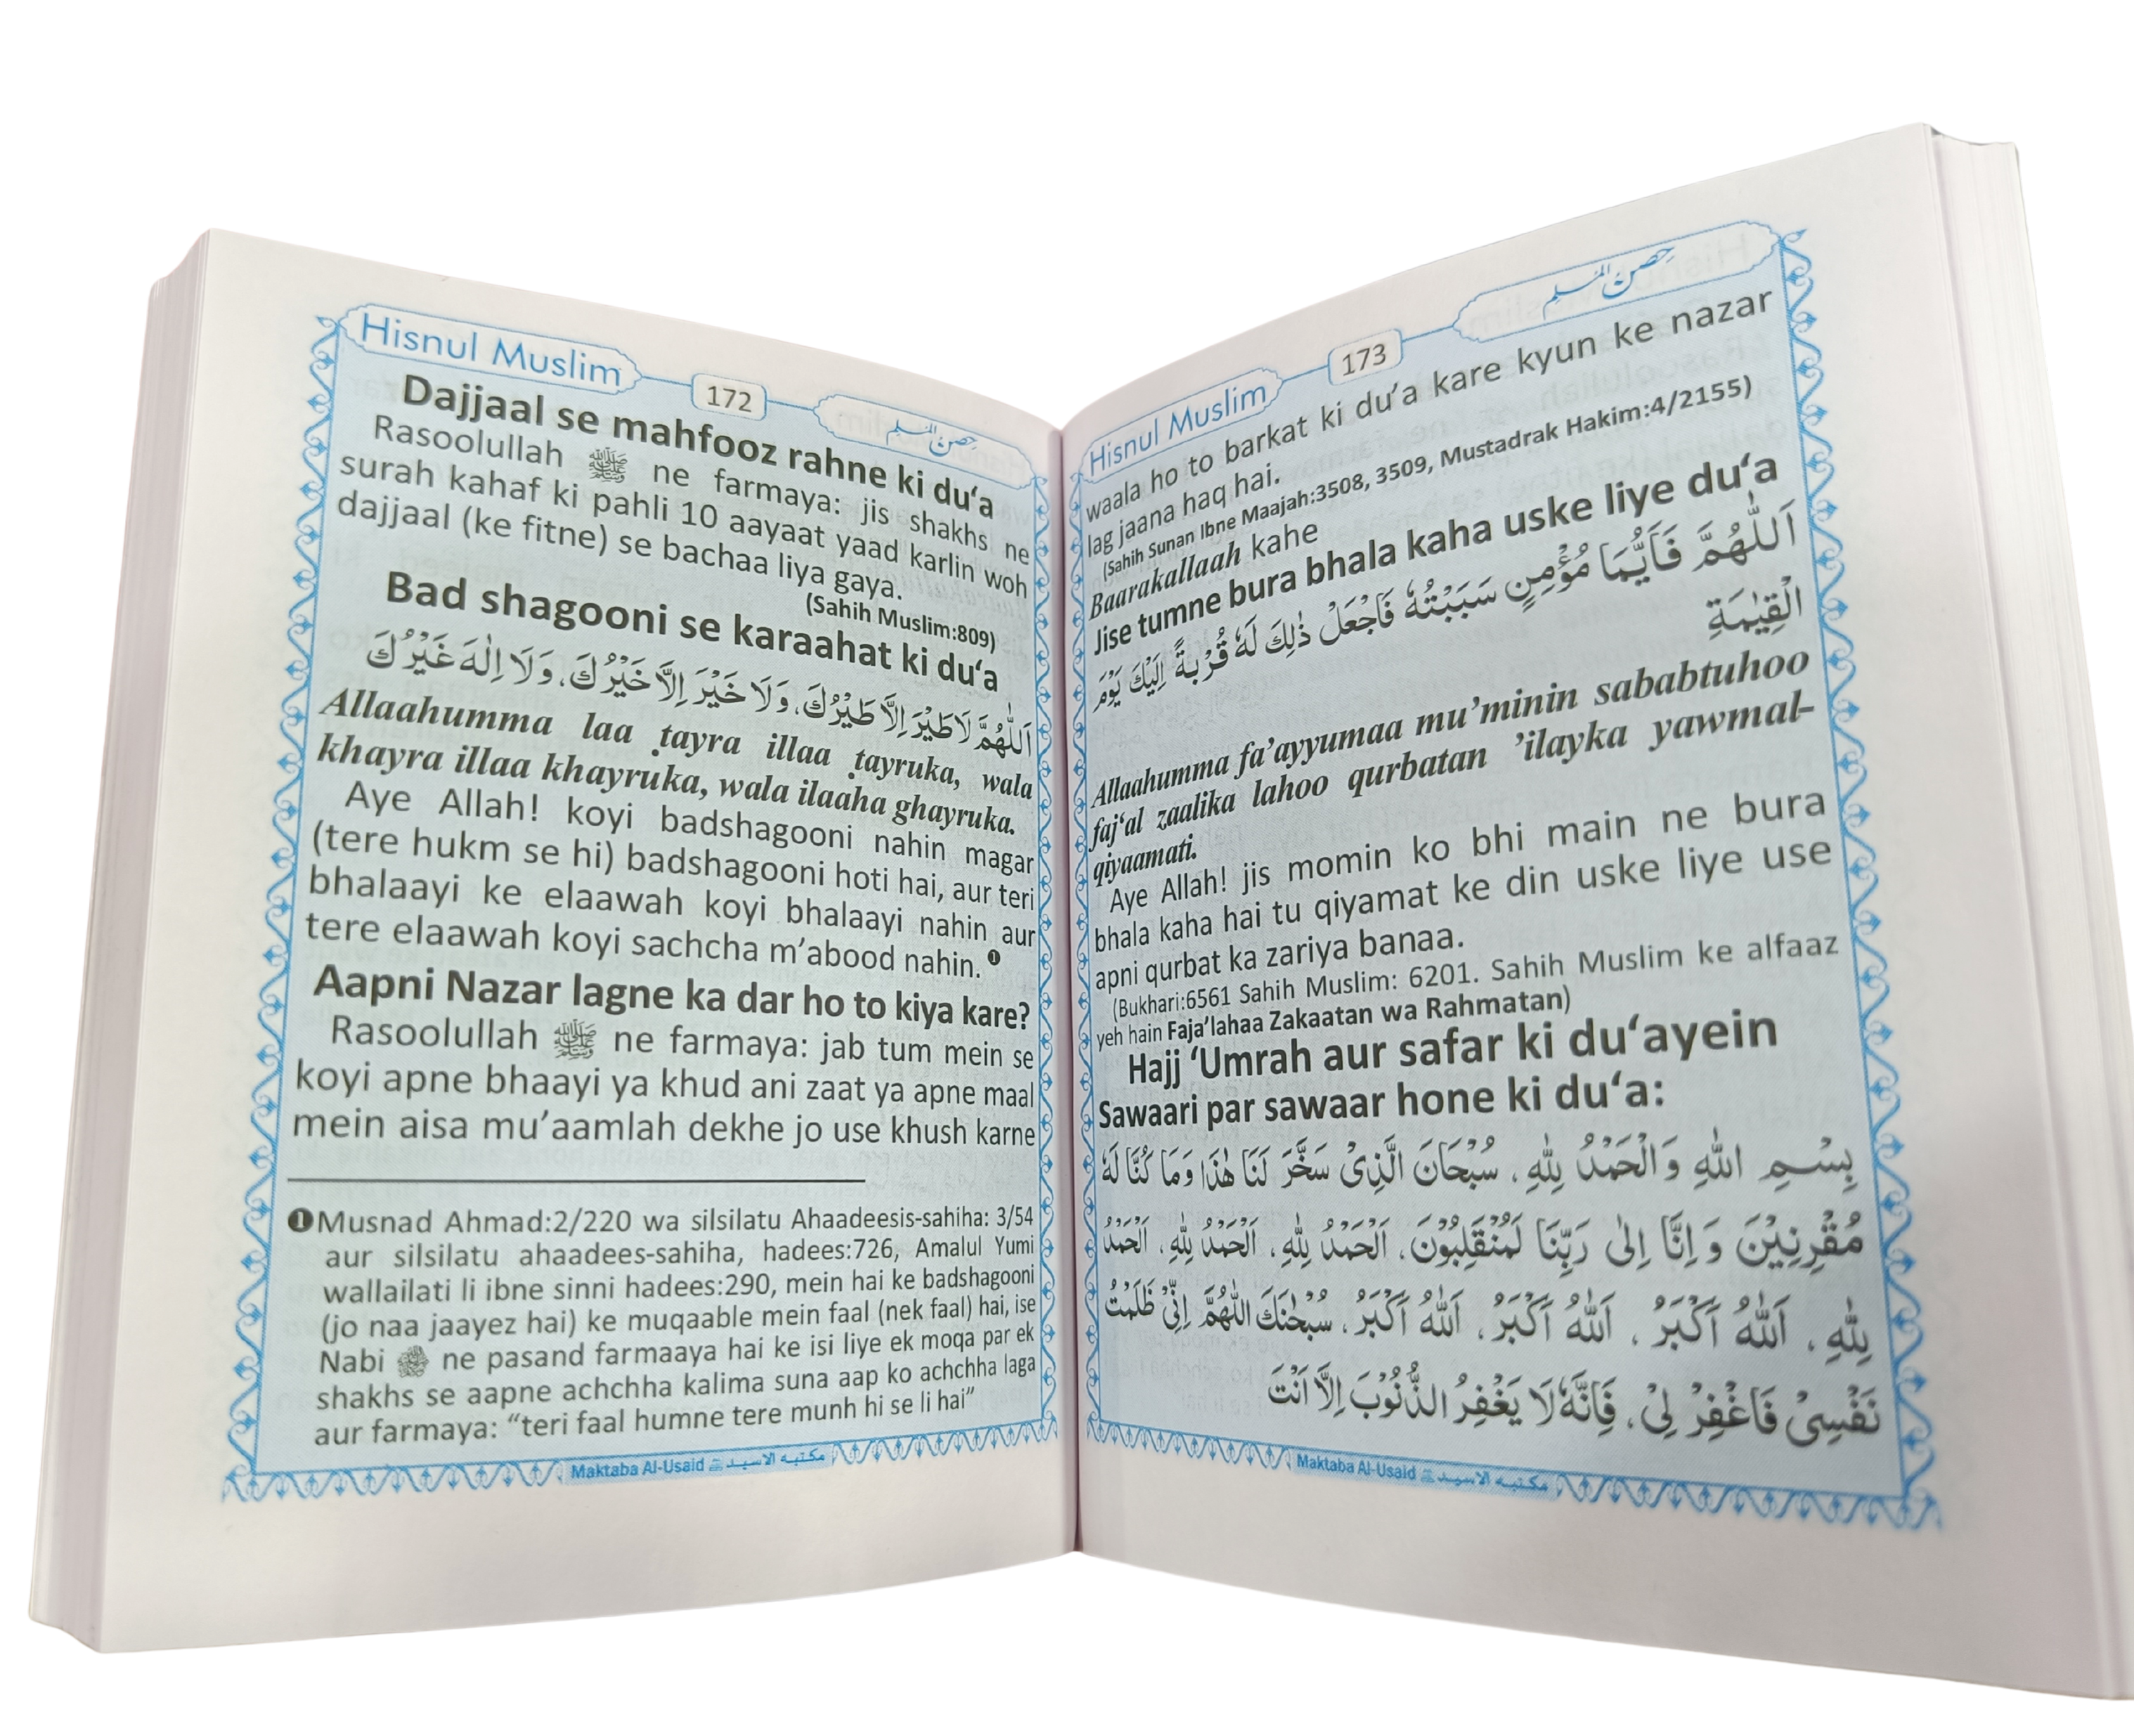 Hisnul Muslim 172 حصن المسلم
Dajjaal se mahfooz rahne ki du‘a
Rasoolullah ﷺ ne farmaya: jis shakhs ne
surah kahaf ki pahli 10 aayaat yaad karlin woh
dajjaal (ke fitne) se bachaa liya gaya.
(Sahih Muslim:809)
Bad shagooni se karaahat ki du‘a
اَللّٰهُمَّ لَا طَيْرَ اِلَّا طَيْرُكَ، وَلَا خَيْرَ اِلَّا خَيْرُكَ، وَلَا اِلٰهَ غَيْرُكَ
Allaahumma laa ṭayra illaa ṭayruka, wala
khayra illaa khayruka, wala ilaaha ghayruka.
Aye Allah! koyi badshagooni nahin magar
(tere hukm se hi) badshagooni hoti hai, aur teri
bhalaayi ke elaawah koyi bhalaayi nahin aur
tere elaawah koyi sachcha m’abood nahin. ❶
Aapni Nazar lagne ka dar ho to kiya kare?
Rasoolullah ﷺ ne farmaya: jab tum mein se
koyi apne bhaayi ya khud ani zaat ya apne maal
mein aisa mu’aamlah dekhe jo use khush karne
❶Musnad Ahmad:2/220 wa silsilatu Ahaadeesis-sahiha: 3/54
aur silsilatu ahaadees-sahiha, hadees:726, Amalul Yumi
wallailati li ibne sinni hadees:290, mein hai ke badshagooni
(jo naa jaayez hai) ke muqaable mein faal (nek faal) hai, ise
Nabi ﷺ ne pasand farmaaya hai ke isi liye ek moqa par ek
shakhs se aapne achchha kalima suna aap ko achchha laga
aur farmaya: “teri faal humne tere munh hi se li hai”
Maktaba Al-Usaid مكتبه الاسيد
Hisnul Muslim 173 حصن المسلم
waala ho to barkat ki du’a kare kyun ke nazar
lag jaana haq hai.
(Sahih Sunan Ibne Maajah:3508, 3509, Mustadrak Hakim:4/2155)
Baarakallaah kahe
Jise tumne bura bhala kaha uske liye du‘a
اَللّٰهُمَّ فَاَيُّمَا مُؤْمِنٍ سَبَبْتُهٗ فَاجْعَلْ ذٰلِكَ لَهٗ قُرْبَةً اِلَيْكَ يَوْمَ
الْقِيٰمَةِ
Allaahumma fa’ayyumaa mu’minin sababtuhoo
faj‘al zaalika lahoo qurbatan ’ilayka yawmal-
qiyaamati.
Aye Allah! jis momin ko bhi main ne bura
bhala kaha hai tu qiyamat ke din uske liye use
apni qurbat ka zariya banaa.
(Bukhari:6561 Sahih Muslim: 6201. Sahih Muslim ke alfaaz
yeh hain Faja’lahaa Zakaatan wa Rahmatan)
Hajj ‘Umrah aur safar ki du‘ayein
Sawaari par sawaar hone ki du‘a:
بِسْمِ اللّٰهِ وَالْحَمْدُ لِلّٰهِ، سُبْحَانَ الَّذِىْ سَخَّرَ لَنَا هٰذَا وَمَا كُنَّا لَهٗ
مُقْرِنِيْنَ وَاِنَّا اِلٰى رَبِّنَا لَمُنْقَلِبُوْنَ، اَلْحَمْدُ لِلّٰهِ، اَلْحَمْدُ لِلّٰهِ، اَلْحَمْدُ
لِلّٰهِ، اَللّٰهُ اَكْبَرُ، اَللّٰهُ اَكْبَرُ، اَللّٰهُ اَكْبَرُ، سُبْحٰنَكَ اللّٰهُمَّ اِنِّىْ ظَلَمْتُ
نَفْسِىْ فَاغْفِرْ لِىْ، فَاِنَّهٗ لَا يَغْفِرُ الذُّنُوْبَ اِلَّا اَنْتَ
Maktaba Al-Usaid مكتبه الاسيد